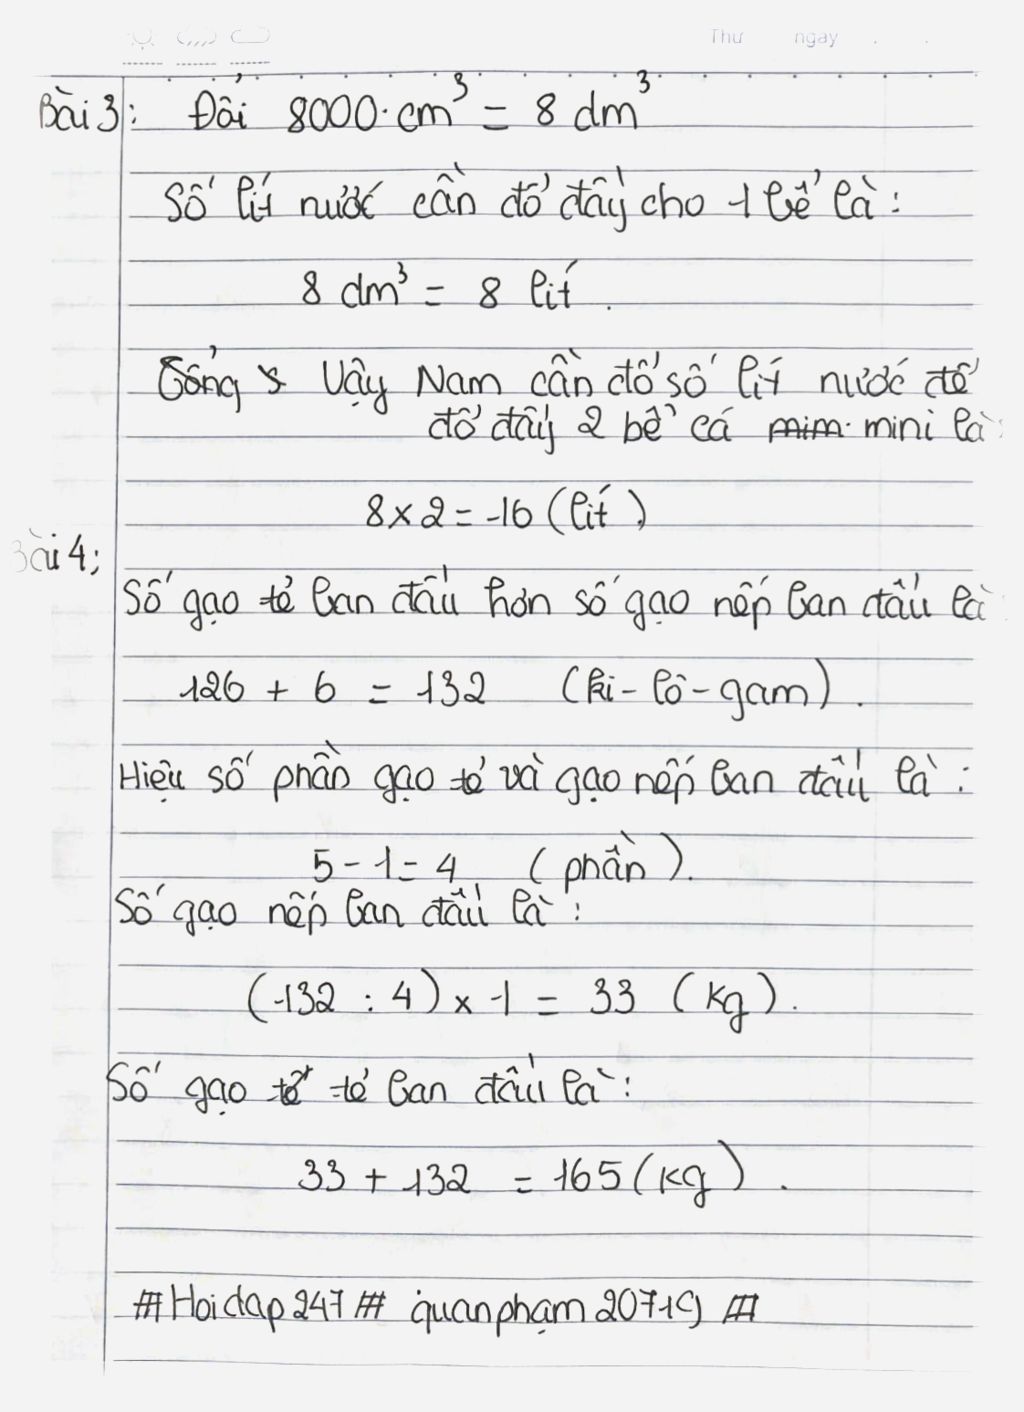 Thứ ngày
Bài 3: Đổi 8000 cm³ = 8 dm³
Số lít nước cần đổ đầy cho 1 bể là:
8 dm³ = 8 lít.
Tổng s Vậy Nam cần đổ số lít nước để
đổ đầy 2 bể cá mim mini là:
8 x 2 = 16 (lít)
Bài 4:
Số gạo tẻ ban đầu hơn số gạo nếp ban đầu là
126 + 6 = 132 (ki-lô-gam).
Hiệu số phần gạo tẻ và gạo nếp ban đầu là:
5 - 1 = 4 (phần).
Số gạo nếp ban đầu là:
(132 : 4) x 1 = 33 (kg).
Số gạo tế tẻ ban đầu là:
33 + 132 = 165 (kg).
#Hoidap247# quanphạm20719#